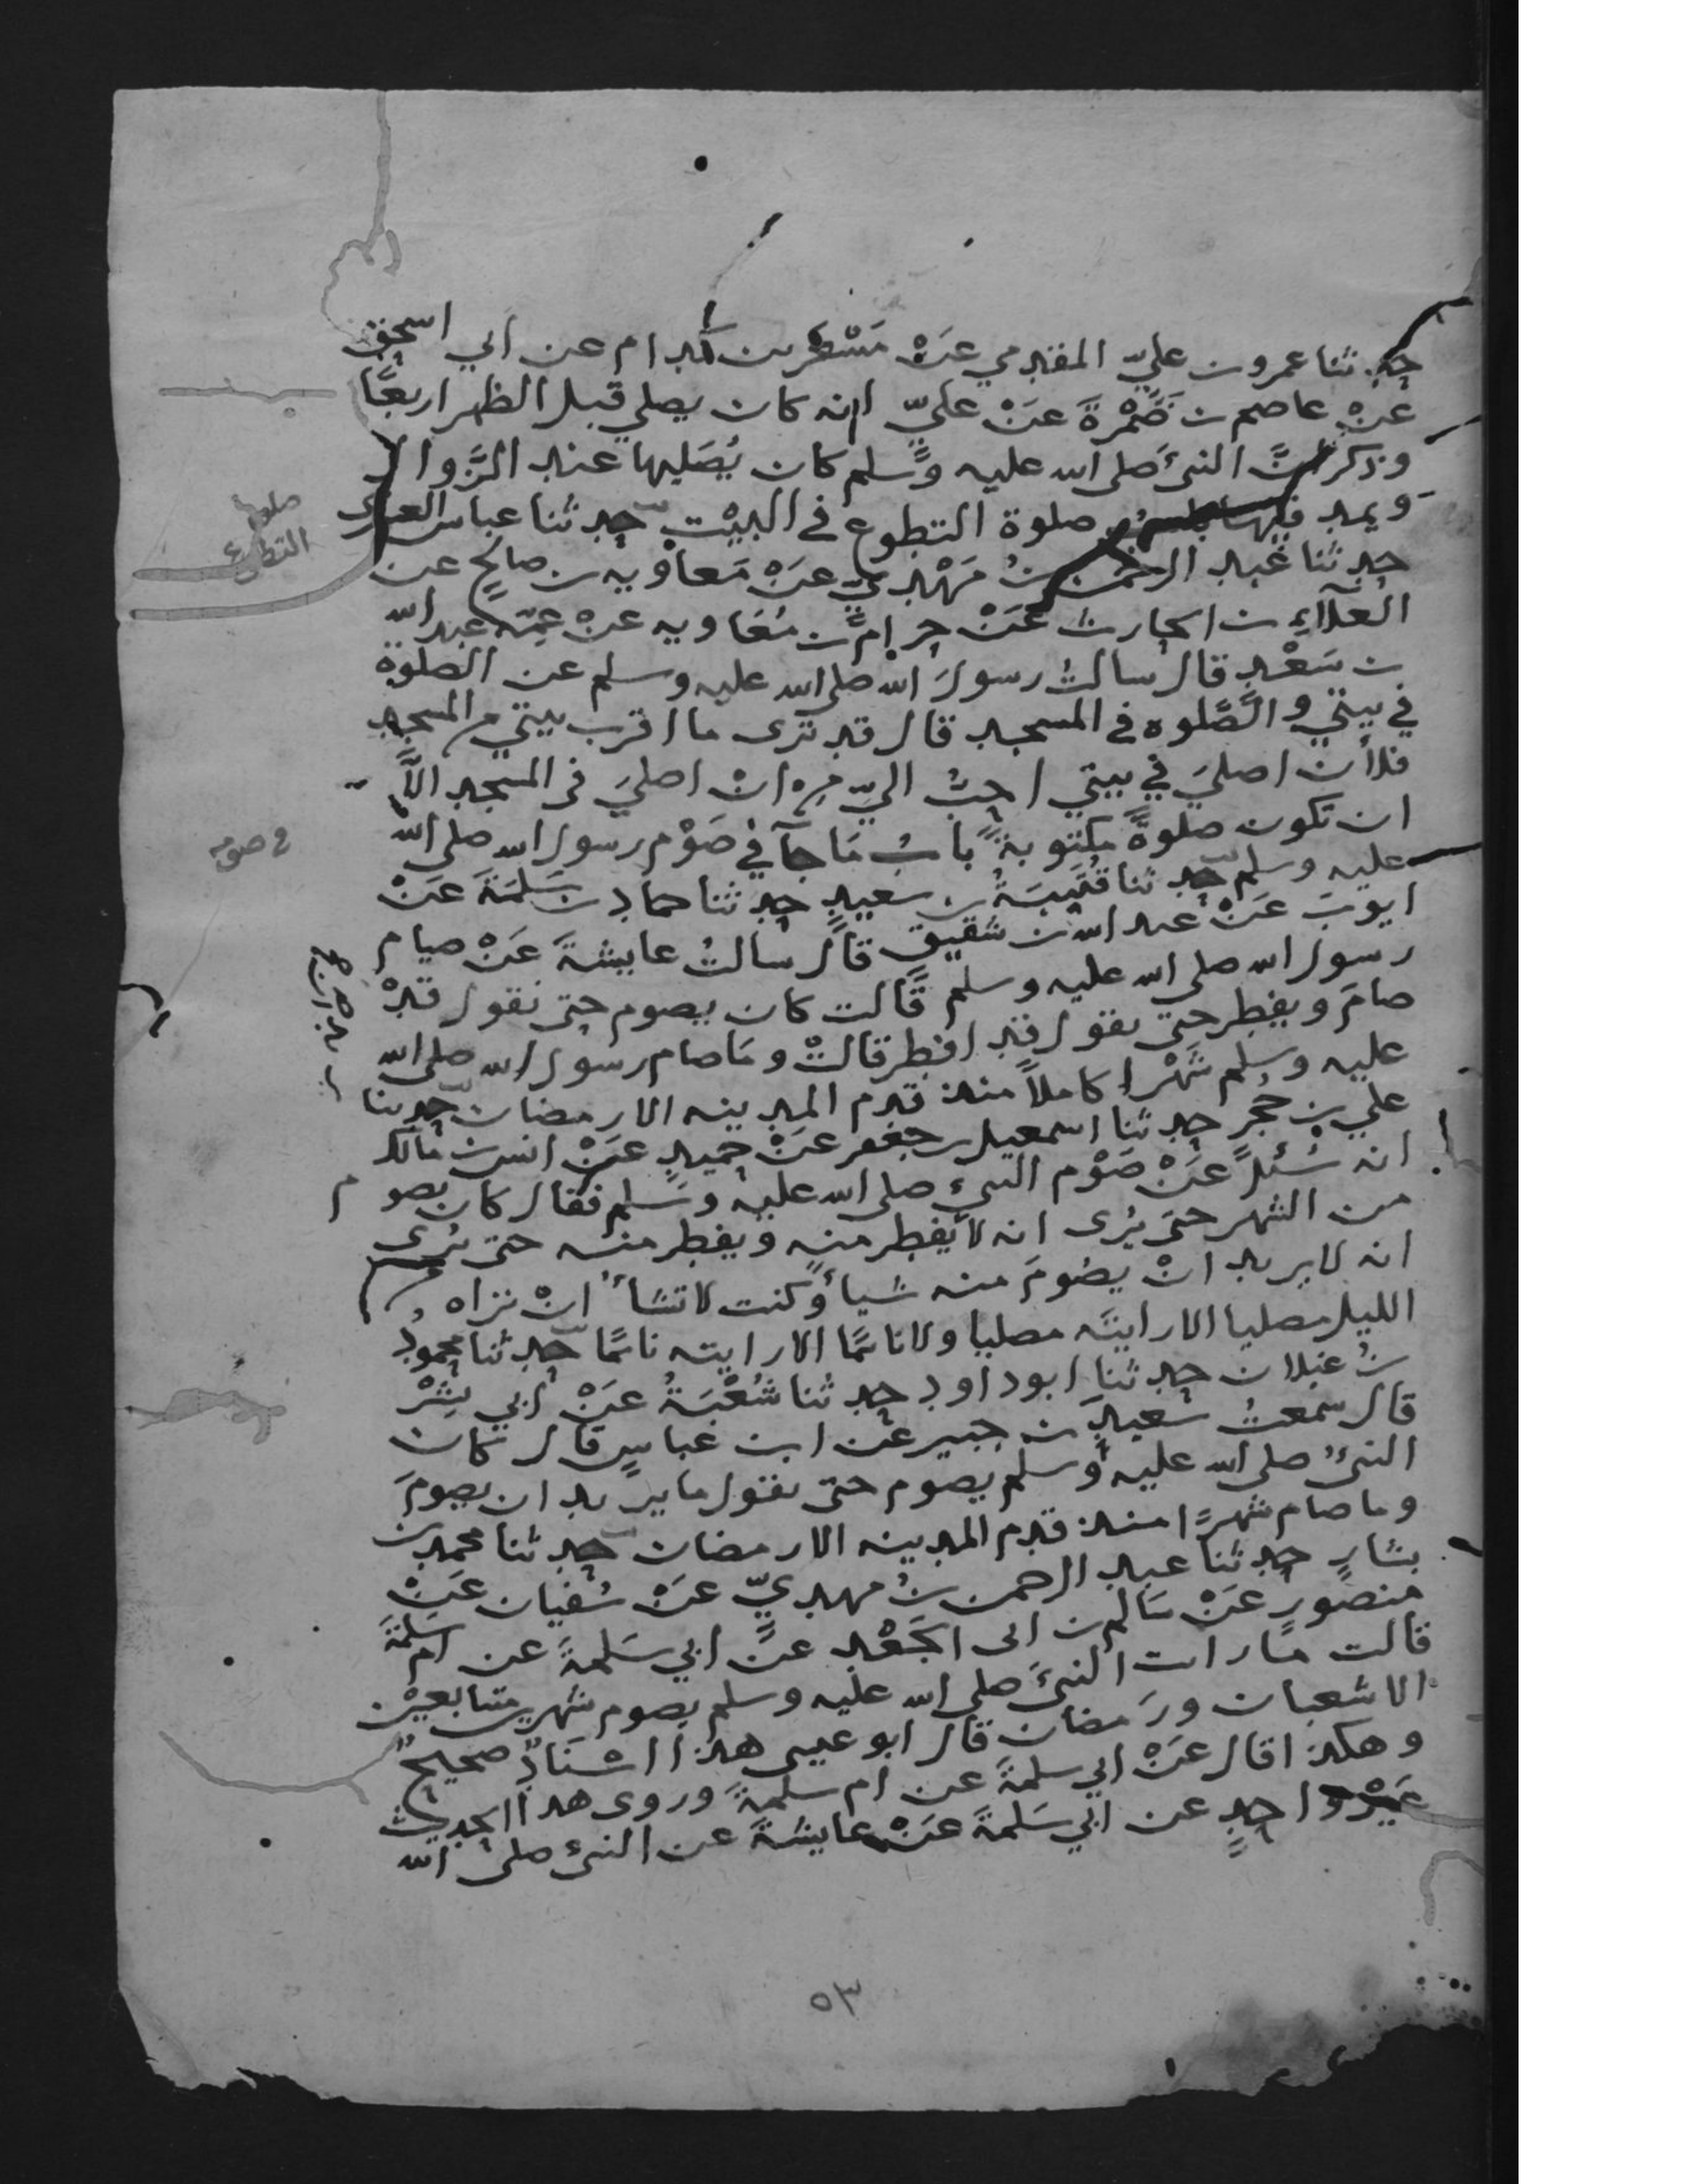 حدثنا عمرو بن عليّ المقدمي عَنْ مَسْعَر بن كدام عن ابي اسحق
عَنْ عاصم بن ضَمْرَةَ عَنْ عليّ انه كان يصلي قبل الظهر اربعًا
وذكر انَّ النبيَّ صلى الله عليه وسلم كان يُصَليها عند الزَّوال
ويمد فيها باب صلوة التطوع في البيْت حدثنا عباس العنبرى
صلوة
التطوع
حدثنا عبد الرحمن بنُ مَهْدي عَنْ مَعاوِيه بن صالحٍ عن
العلآءِ بن الحارث عَنْ حرامِ بن مُعَاويه عنْ عمّه عبد الله
بن سَعْدٍ قال سالتُ رسولَ الله صلى الله عليه وسلم عن الصلوة
في بيتي والصَّلوه في المسجد قال قد ترى ما اقرب بيتي من المسجد
فلأن اصليَ في بيتي احبُّ اليّ من انْ اصليَ في المسجد الاَّ
ان تكون صلوةً مكتوبةً بابُ مَا جآ في صَوْم رسول الله صلى الله
في صوم
عليه وسلم حدثنا قُتَيبَةُ بن سعيدٍ حدثنا حماد بن سَلمَةَ عَنْ
ايوبَ عَنْ عبد الله بن شقيقٍ قال سالتُ عايشةَ عَنْ صيام
رسول الله صلى الله عليه وسلم قالت كان يصوم حتى نقول قَدْ
صامَ ويفطر حتى نقول قد افطر قالتْ ومَا صام رسول الله صلى الله
عليه وسلم شَهْرا كاملاً منذ قدم المدينه الا رمضان حدثنا
علي بن حُجْرٍ حدثنا اسمعيل بن جعفر عَنْ حميدٍ عَنْ انس بن مالك
انه سُئلَ عَنْ صَوْم النبيِ صلى الله عليه وسَلم فقال كان يصوم
من الشهر حتى يُرى انه لا يفطر منه ويفطر منه حتى يُرى
انه لا يريد انْ يصُومَ منه شيأ وكنت لا تشأ انْ تراه من
الليل مصليا الا رايتَه مصليا ولا نائمًا الا رايته نائمًا حدثنا محمودُ
بنُ غيلان حدثنا ابو داود حدثنا شُعْبَةُ عَنْ ابي بِشْرْ
قال سمعتُ سَعيدَ بن جبير عَن ابن عَباسٍ قال كان
النبيُ صلى الله عليه وسلم يصوم حتى نقول ما يريد ان يصومَ
وما صام شهرًا منذ قدم المدينه الا رمضان حدثنا محمد بن
بشارٍ حدثنا عبد الرحمن بنُ مهديّ عَنْ سُفيان عَنْ
منصورٍ عَنْ سَالم بن ابى الجَعْد عَنْ ابي سَلمةَ عن ام سَلمَةَ
قالت ما رات النبيَّ صلى الله عليه وسلم يصوم شهرين متتابعيْن
الا شعبان ورَمضان قال ابو عيسى هذا اسْنَادٌ صحيحٌ
وهكذا قال عَنْ ابي سلمةَ عن ام سلمةَ وروى هذا الحديث
غيرُ واحدٍ عن ابي سَلمةَ عَنْ عايشةَ عن النبي صلى الله
٥٣